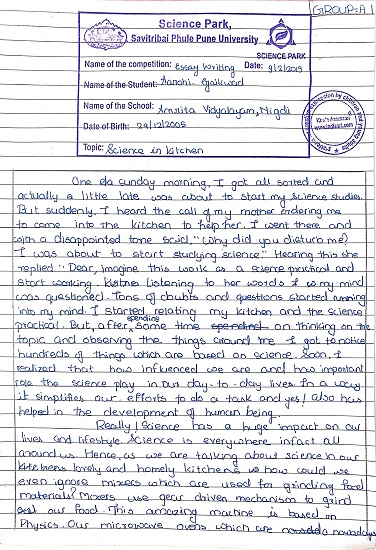 GROUP=A
Science Park,
Savitribai Phule Pune University
SCIENCE PARK
Name of the competition: Essay Writing Date: 9/2/2019
Name of the Student: Aarohi Gaikwad
Name of the School: Amrita Vidyalayam, Nigdi
Date of Birth: 29/12/2005
Topic: Science in kitchen
One sunday morning, I got all sorted and
actually a little late was about to start my science studies.
But suddenly, I heard the call of my mother ordering me
to come into the kitchen to help her. I went there and
with a disappointed tone said, "Why did you disturb me?
I was about to start studying science". Hearing this she
replied "Dear, imagine this work as a science practical and
start working. listening to her words my mind
was questioned. Tons of doubts and questions started running
into my mind. I started relating my kitchen and the science
practical. But, after spending some time on thinking on the
topic and observing the things around me I got to notice
hundreds of things which are based on science. Soon, I
realized that how influenced we are and how important
role the science play in our day-to-day lives. In a way
it simplifies our efforts to do a task and yes! also has
helped in the development of human being.
Really! Science has a huge impact on our
lives and lifestyle. Science is everywhere infact all
around us. Hence, as we are talking about science in our
kitchens lovely and homely kitchens how could we
even ignore mixers which are used for grinding food
materials? Mixers use gear driven mechanism to grind
our food. This amazing machine is based on
Physics. Our microwave ovens which are nowadays